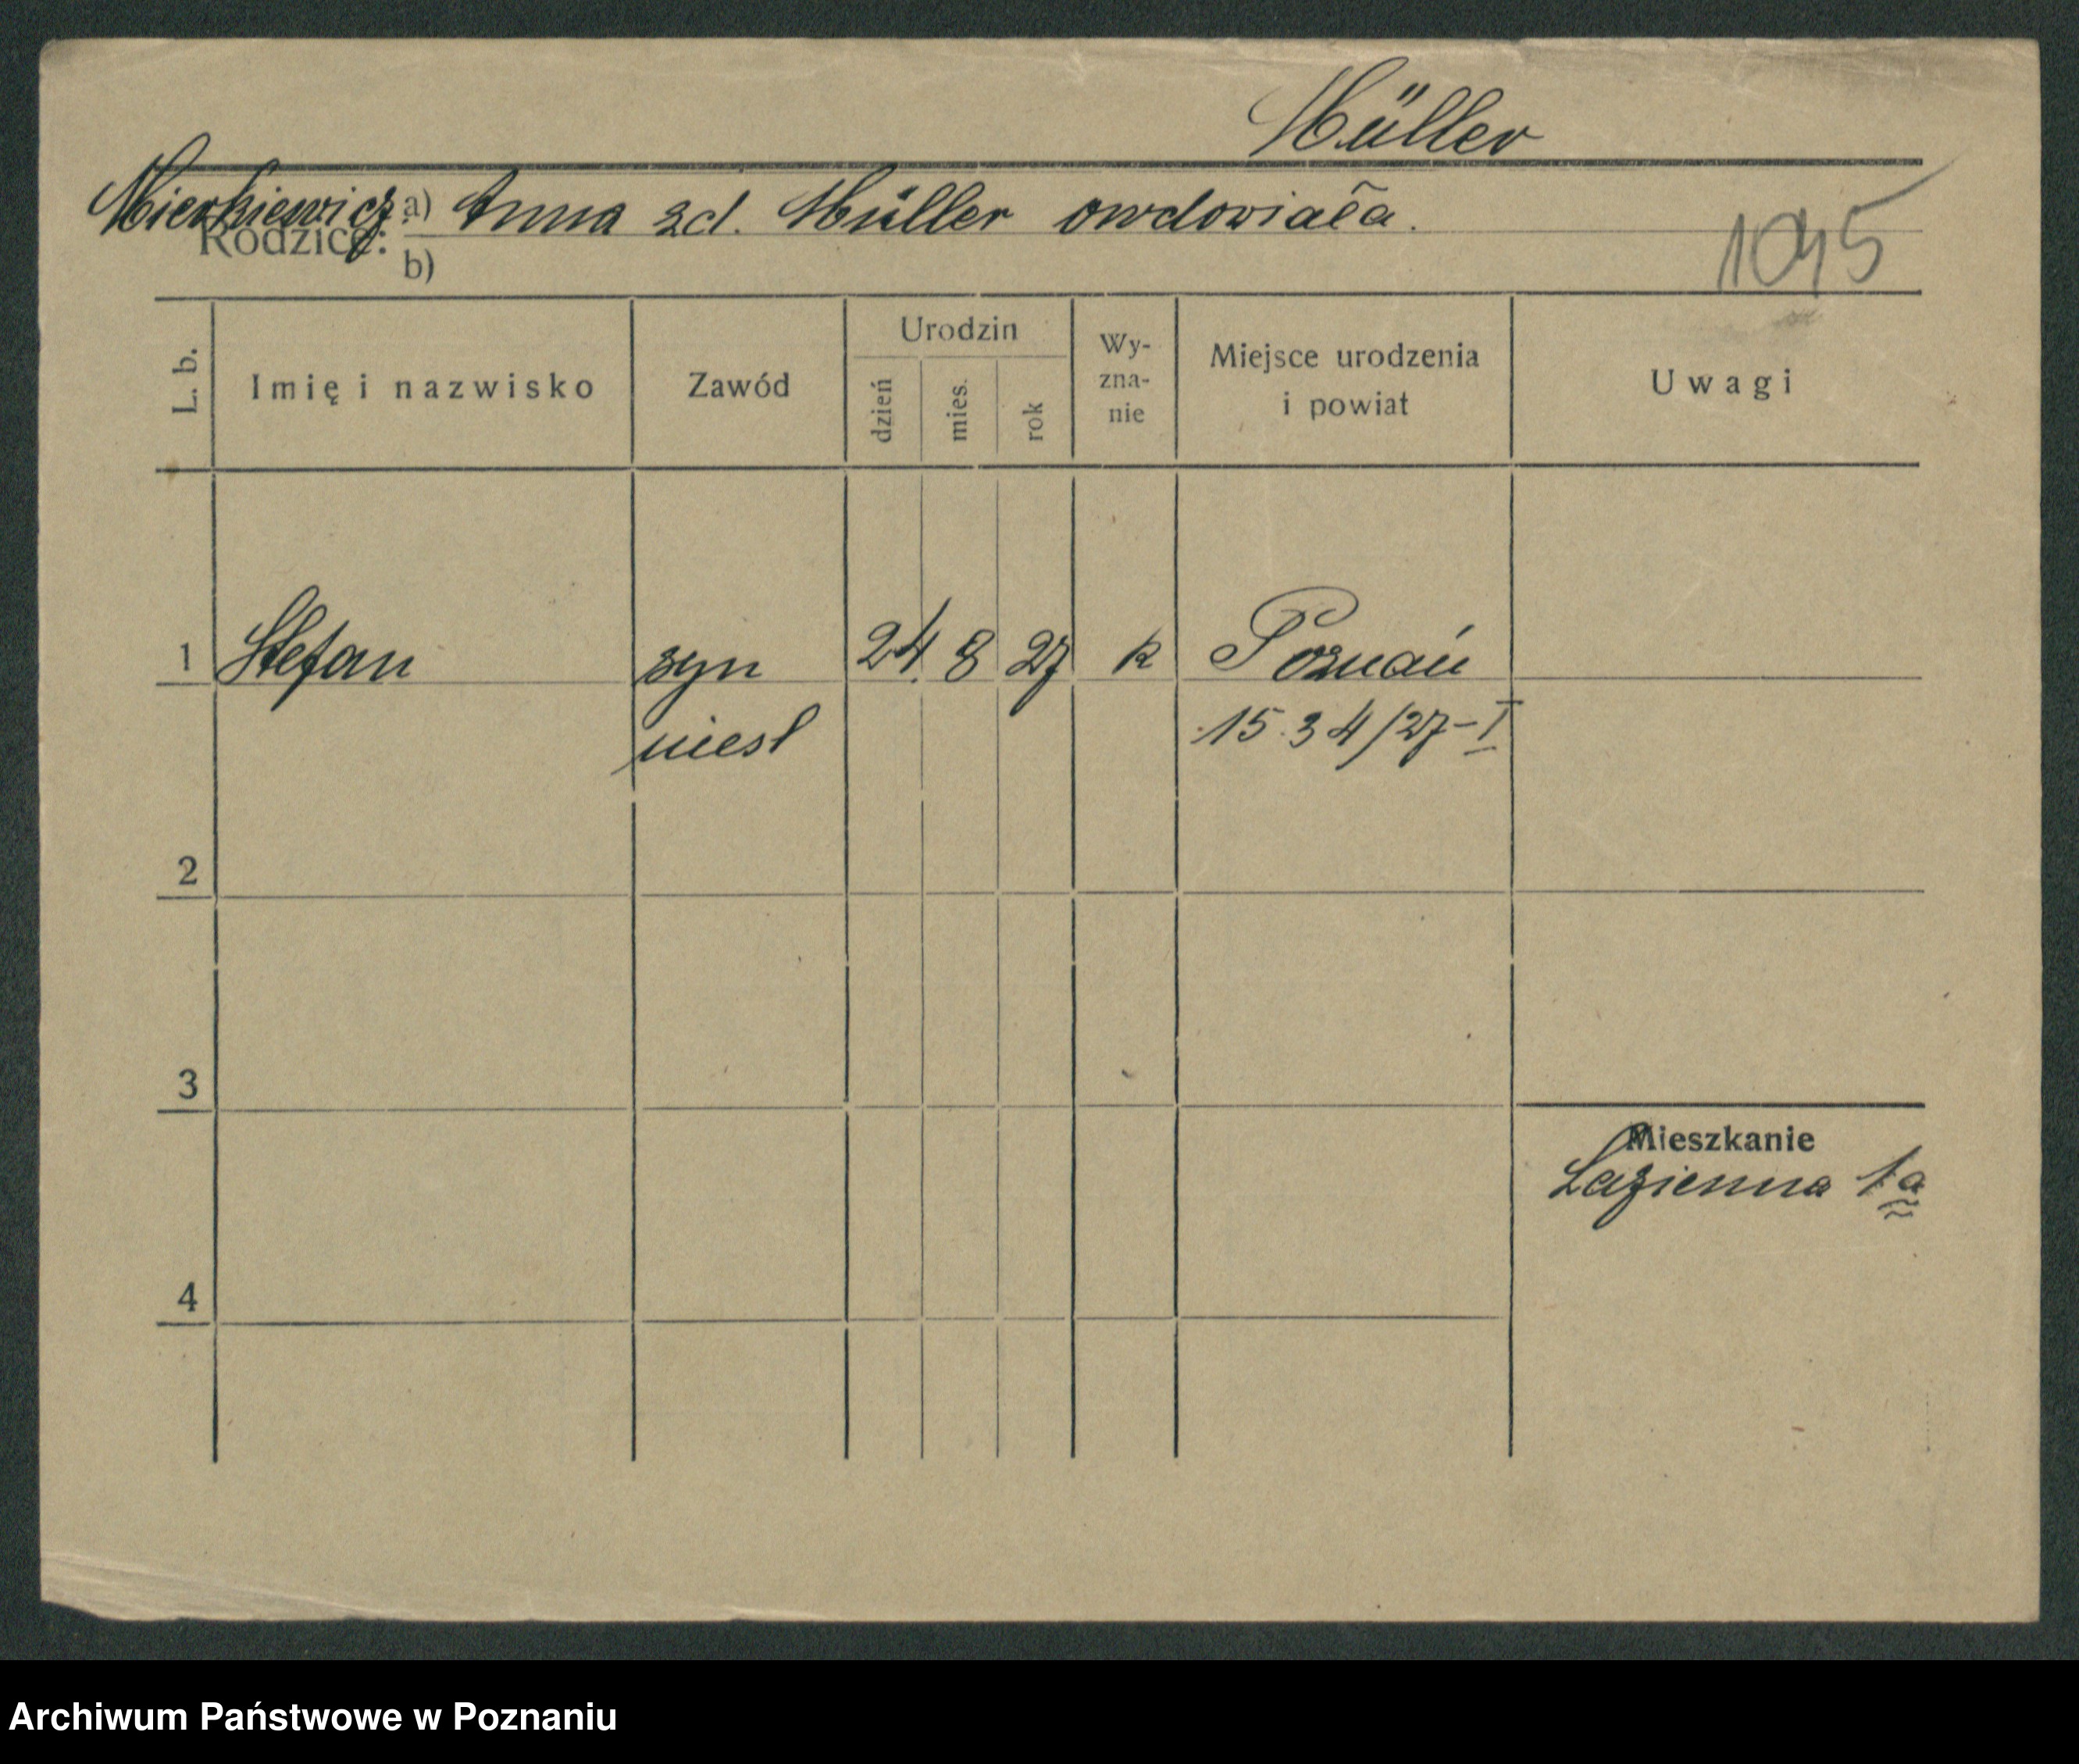 Müller
Mierkiewicz a) Anna zd. Müller owdowiała.
Rodzice:
b)
1045
L. b.
Imię i nazwisko
Zawód
Urodzin
dzień
mies.
rok
Wy-
zna-
nie
Miejsce urodzenia
i powiat
Uwagi
1 Stefan syn 24. 8 27 k Poznań
niesl 15.34/27-I
2
3
Mieszkanie
Łazienna 1a
4
Archiwum Państwowe w Poznaniu